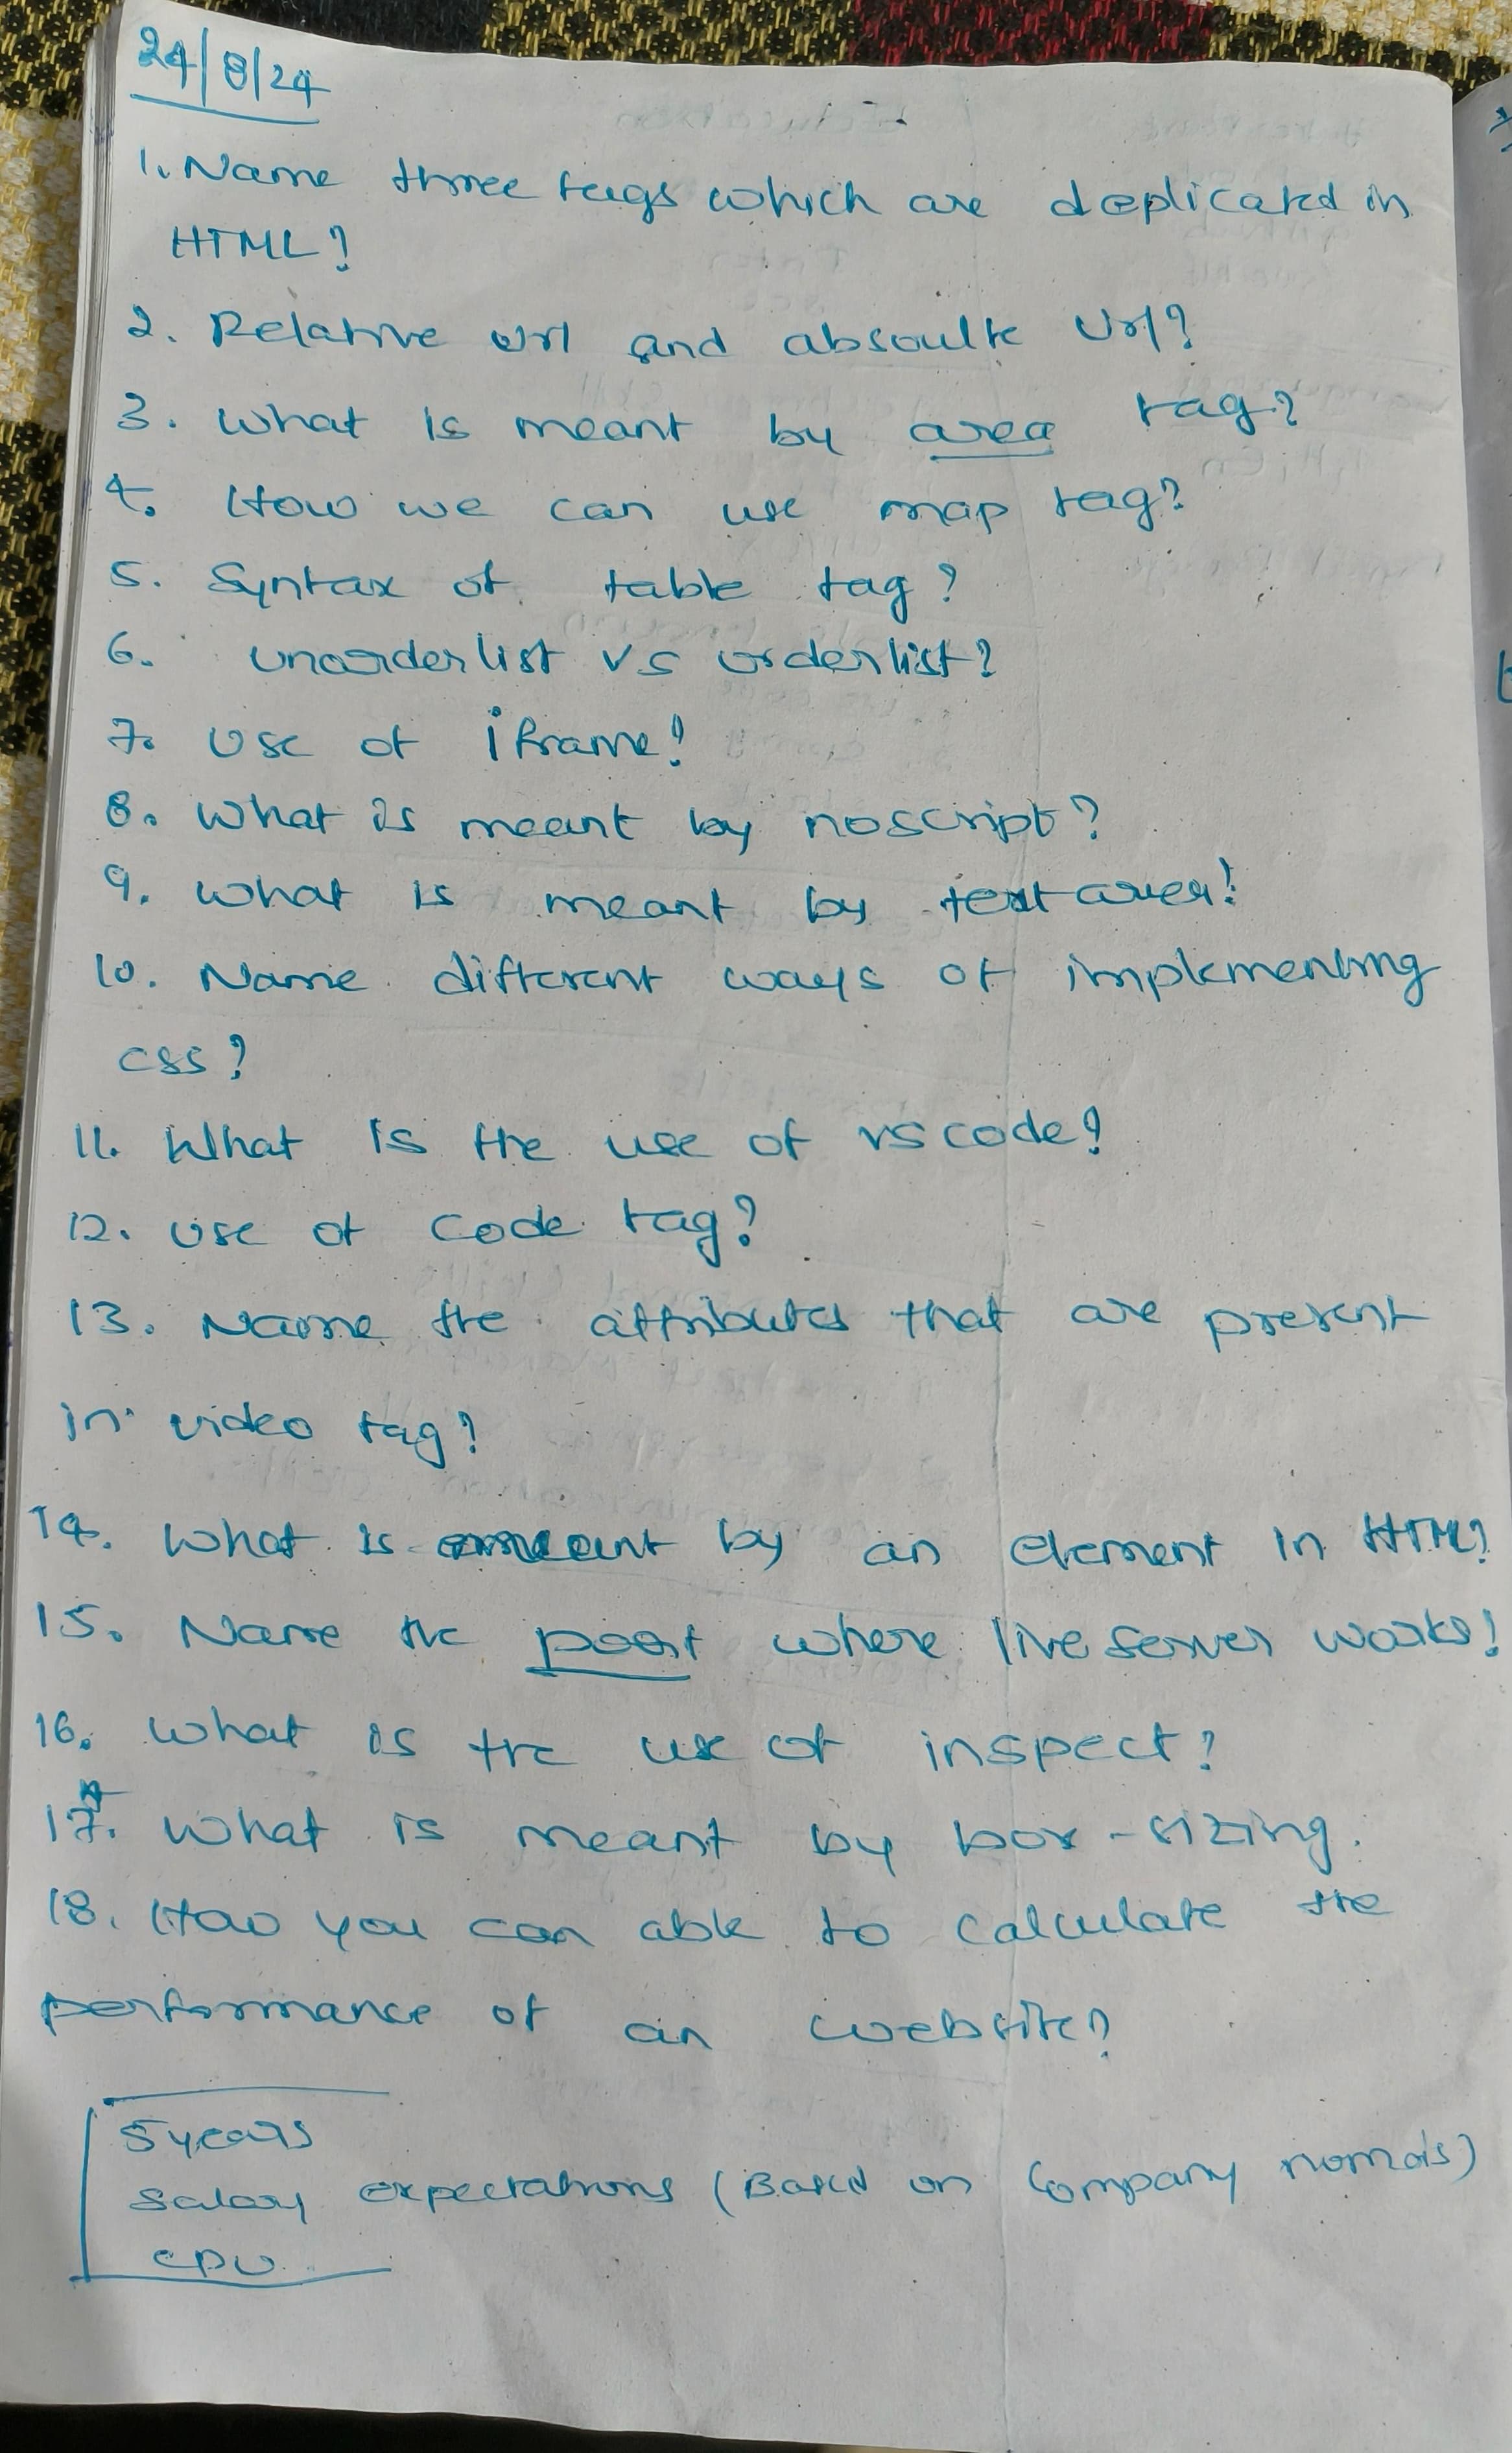 24/8/24
1. Name three tags which are deplicated in
HTML?
2. Relative url and absoulte Url?
3. What is meant by area tag?
4. How we can use map tag?
5. Syntax of table tag?
6. unorderlist vs orderlist?
7. Use of iframe?
8. What is meant by noscript?
9. What is meant by textarea?
10. Name different ways of implementing
css?
11. What is the use of vs code?
12. Use of code tag?
13. Name the attributes that are present
in video tag?
14. What is meant by an element in HTML?
15. Name the port where live server works?
16. What is the use of inspect?
17. What is meant by box-sizing.
18. How you can able to calculate the
performance of an website?
5 years
Salary expectations (Based on Company